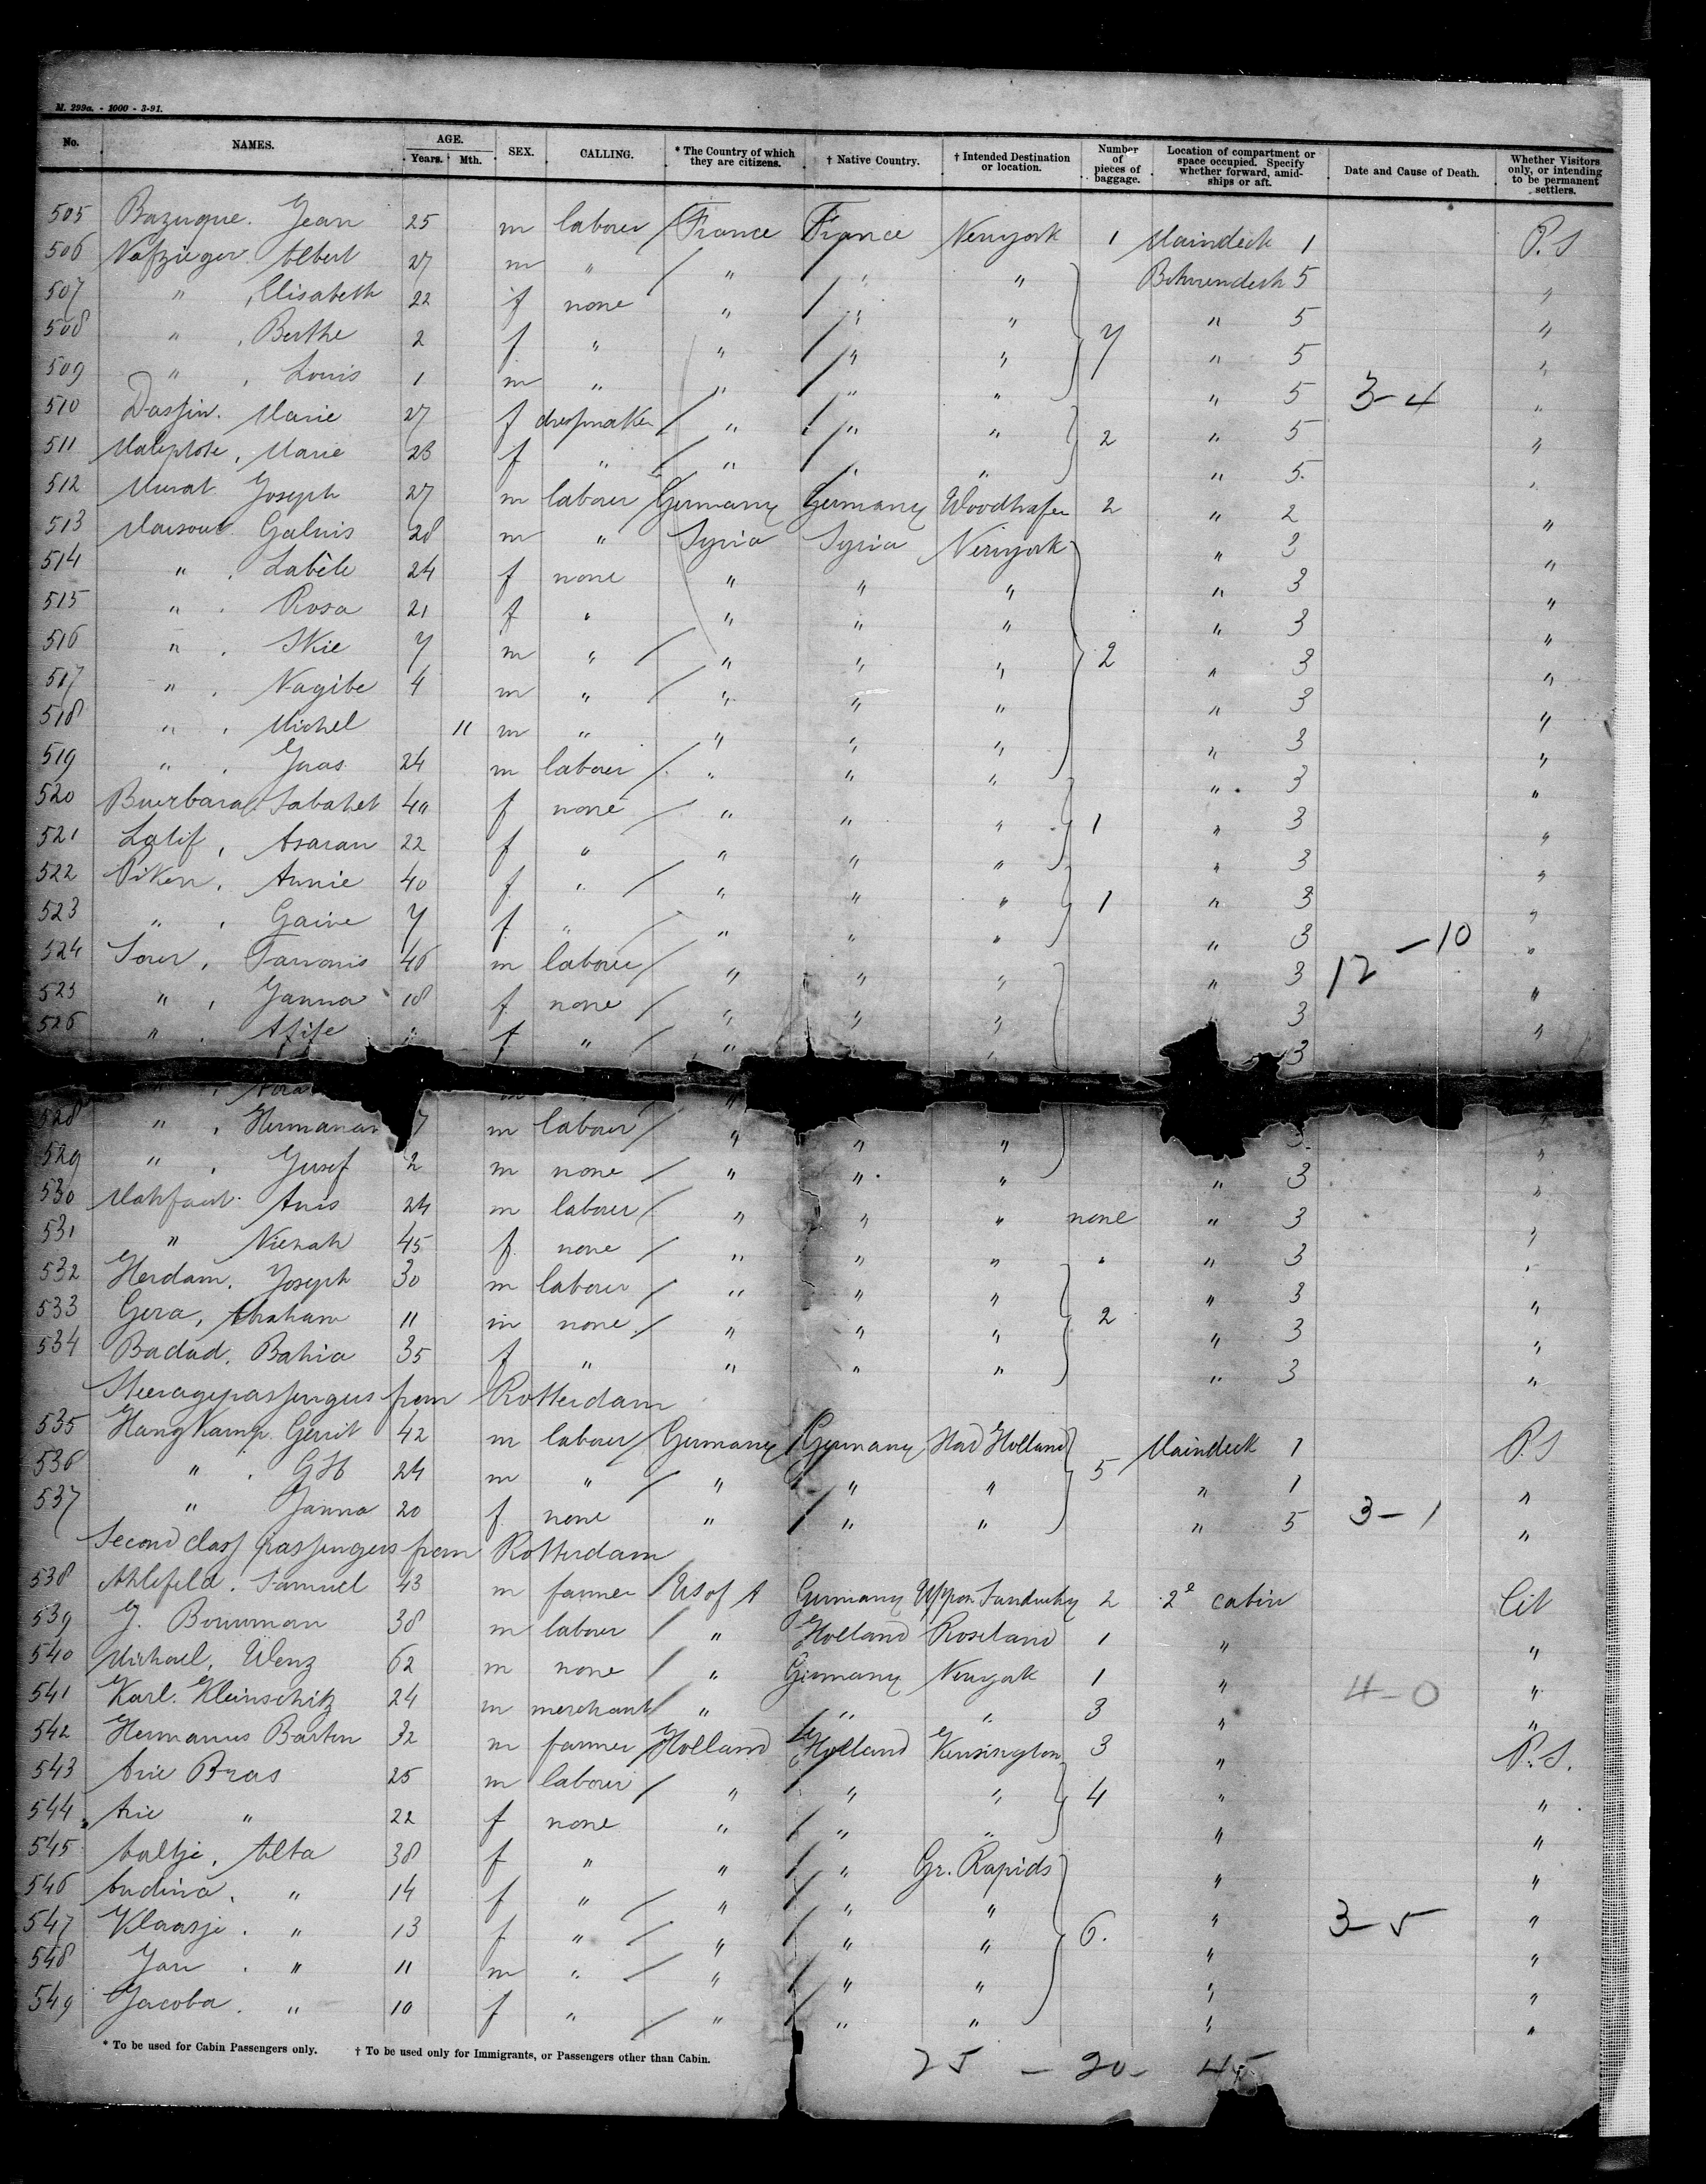 M. 299a. - 1000 - 3-91.
No. NAMES. AGE. Years. Mth. SEX. CALLING. * The Country of which they are citizens. † Native Country. † Intended Destination or location. Number of pieces of baggage. Location of compartment or space occupied. Specify whether forward, amidships or aft. Date and Cause of Death. Whether Visitors only, or intending to be permanent settlers.
505 Bazugue. Jean 25 m laborer / France France Newyork 1 Maindeck 1 P.S
506 Nafzieger Albert 27 m " / " " " 5 "
507 " , Elisabeth 22 f none " / " " " 5 "
508 " , Berthe 2 f " " / " " 7 " 5 "
509 " , Louis 1 m " " / " " " 5 3-4 "
510 Dassin. Marie 27 f dressmaker / " / " " " 5 "
511 Marie 23 f " / " / " " 2 " 5. "
512 Murat Joseph 27 m laborer / Germany Germany 2 " 2 "
513 Galuis 28 m " Syria Syria Newyork " 3 "
514 " . Labile 24 f none " " " " 3 "
515 " . Rosa 21 f " " " " " 3 "
516 " . Skie 7 m " / " " " 2 " 3 "
517 " . Nagibe 4 m " / " " " " 3 "
518 " . Michel 11 m " " " " " 3 "
519 " . Gras 24 m laborer / " " " " 3 "
520 Sabahet 40 f none / " " " 1 " 3 "
521 Latif , Asaran 22 f " " " " " 3 "
522 Piken , Annie 40 f " / " " " 1 " 3 "
523 " , Gaine 7 f " / " " " " 3 "
524 46 m laborer / " " " " 3 12 -10 "
525 " , Janna 18 f none / " " " 3 "
526 " . Afife " f " / " " 3 "
528 " , Hermanan 7 m laborer / " " " 3. "
529 " , Yusef 2 m none / " " " " 3 "
530 Anis 24 m laborer / " " " none " 3 "
531 " 45 f none / " " " " " 3 "
532 Herdam, Joseph 30 m laborer / " " " " 3 "
533 Gera, Abraham 11 m none / " " " 2 " 3 "
534 Badad, Bahia 35 f " " " " " 3 "
Steeragepassengers from Rotterdam
535 Hangkamp Gerrit 42 m laborer / Germany / Germany Holland 5 Maindeck 1 P.S
536 " . GH 24 m " / " / " " " 1 "
537 " Janna 20 f none " / " " " 5 3-1 "
Second class passengers from Rotterdam
538 Ahlefeld. Samuel 43 m farmer / US of A Germany Upper Sandusky 2 2e cabin Cit
539 J. Bouwman 38 m laborer / " Holland Roseland 1 " "
540 Michael, Wenz 62 m none / " Germany Newyork 1 " "
541 Karl. Kleinschitz 24 m merchant / " " " 3 " 4-0 "
542 Hermanus Barten 32 m farmer / Holland Holland Kensington 3 " P.S.
543 Arie Bras 25 m laborer / " / " " 4 " "
544 Arie " 22 f none " / " " " "
545 Aaltje, Alta 38 f " " / " Gr. Rapids " "
546 Andina. " 14 f " / " / " " " "
547 Klaasje. " 13 f " / " / " " 6. " 3-5 "
548 Jan . " 11 m " / " / " " " "
549 Jacoba. " 10 f " / " / " " " "
* To be used for Cabin Passengers only. † To be used only for Immigrants, or Passengers other than Cabin.
25 - 20 - 45